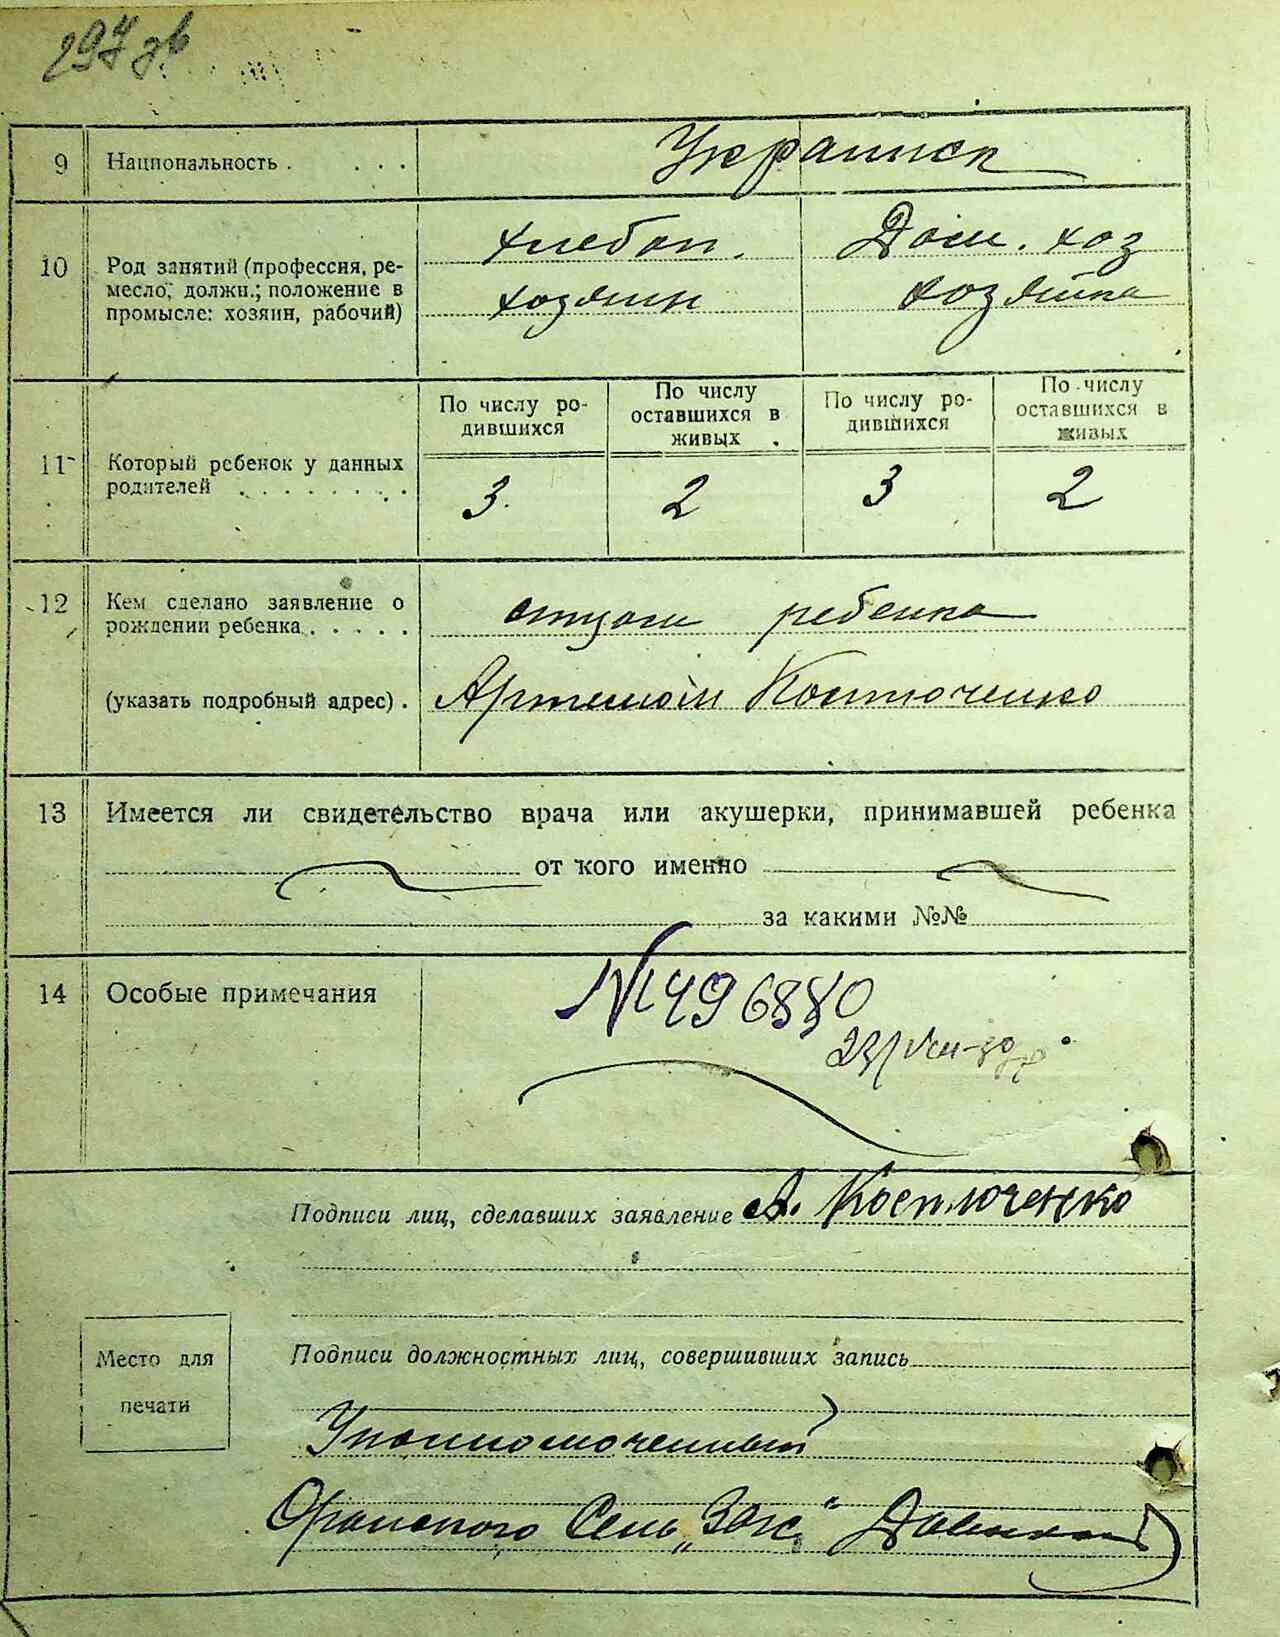 297 зв
9 Национальность . . . . Украинск
10 Род занятий (профессия, ре-
месло, должн.; положение в
промысле: хозяин, рабочий)
хлебоп. Дом. хоз
хозяин хозяйка
11 Который ребенок у данных
родителей . . . . . . . .
По числу ро-
дившихся
По числу
оставшихся в
живых
По числу ро-
дившихся
По числу
оставшихся в
живых
3. 2 3 2
12 Кем сделано заявление о
рождении ребенка . . . . . отцом ребенка
(указать подробный адрес) . Артемом Костюченко
13 Имеется ли свидетельство врача или акушерки, принимавшей ребенка
от кого именно
за какими №№
14 Особые примечания
№496880
23/VIII-30
Подписи лиц, сделавших заявление А. Костюченко
Место для
печати
Подписи должностных лиц, совершивших запись
Уполномоченный
Сель „Загс“